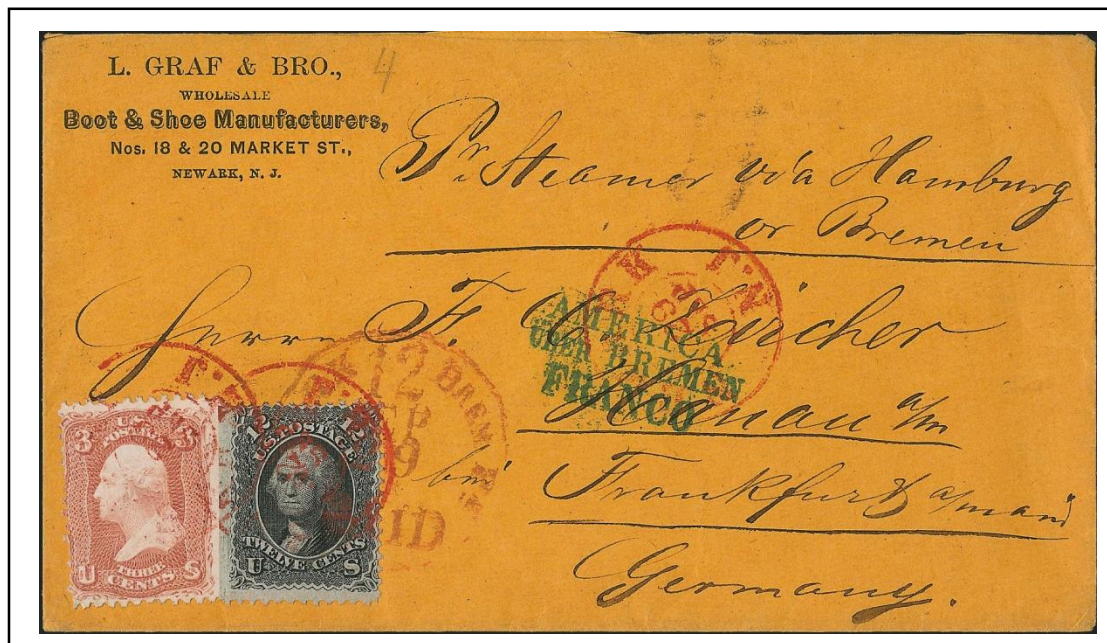 L. GRAF & BRO.,
WHOLESALE
Boot & Shoe Manufacturers,
Nos. 18 & 20 MARKET ST.,
NEWARK, N. J.
4
Pr. Steamer via Hamburg
or Bremen
Herrn F. C. Zürcher
AMERICA
ÜBER BREMEN
FRANCO
Hanau a/m
bei Frankfurt a/main
Germany.
3 3
U.S. POSTAGE
THREE
U CENTS S
12 12
U.S. POSTAGE
TWELVE CENTS
U S
12
BREM. PK.
9
PAID
N.J.